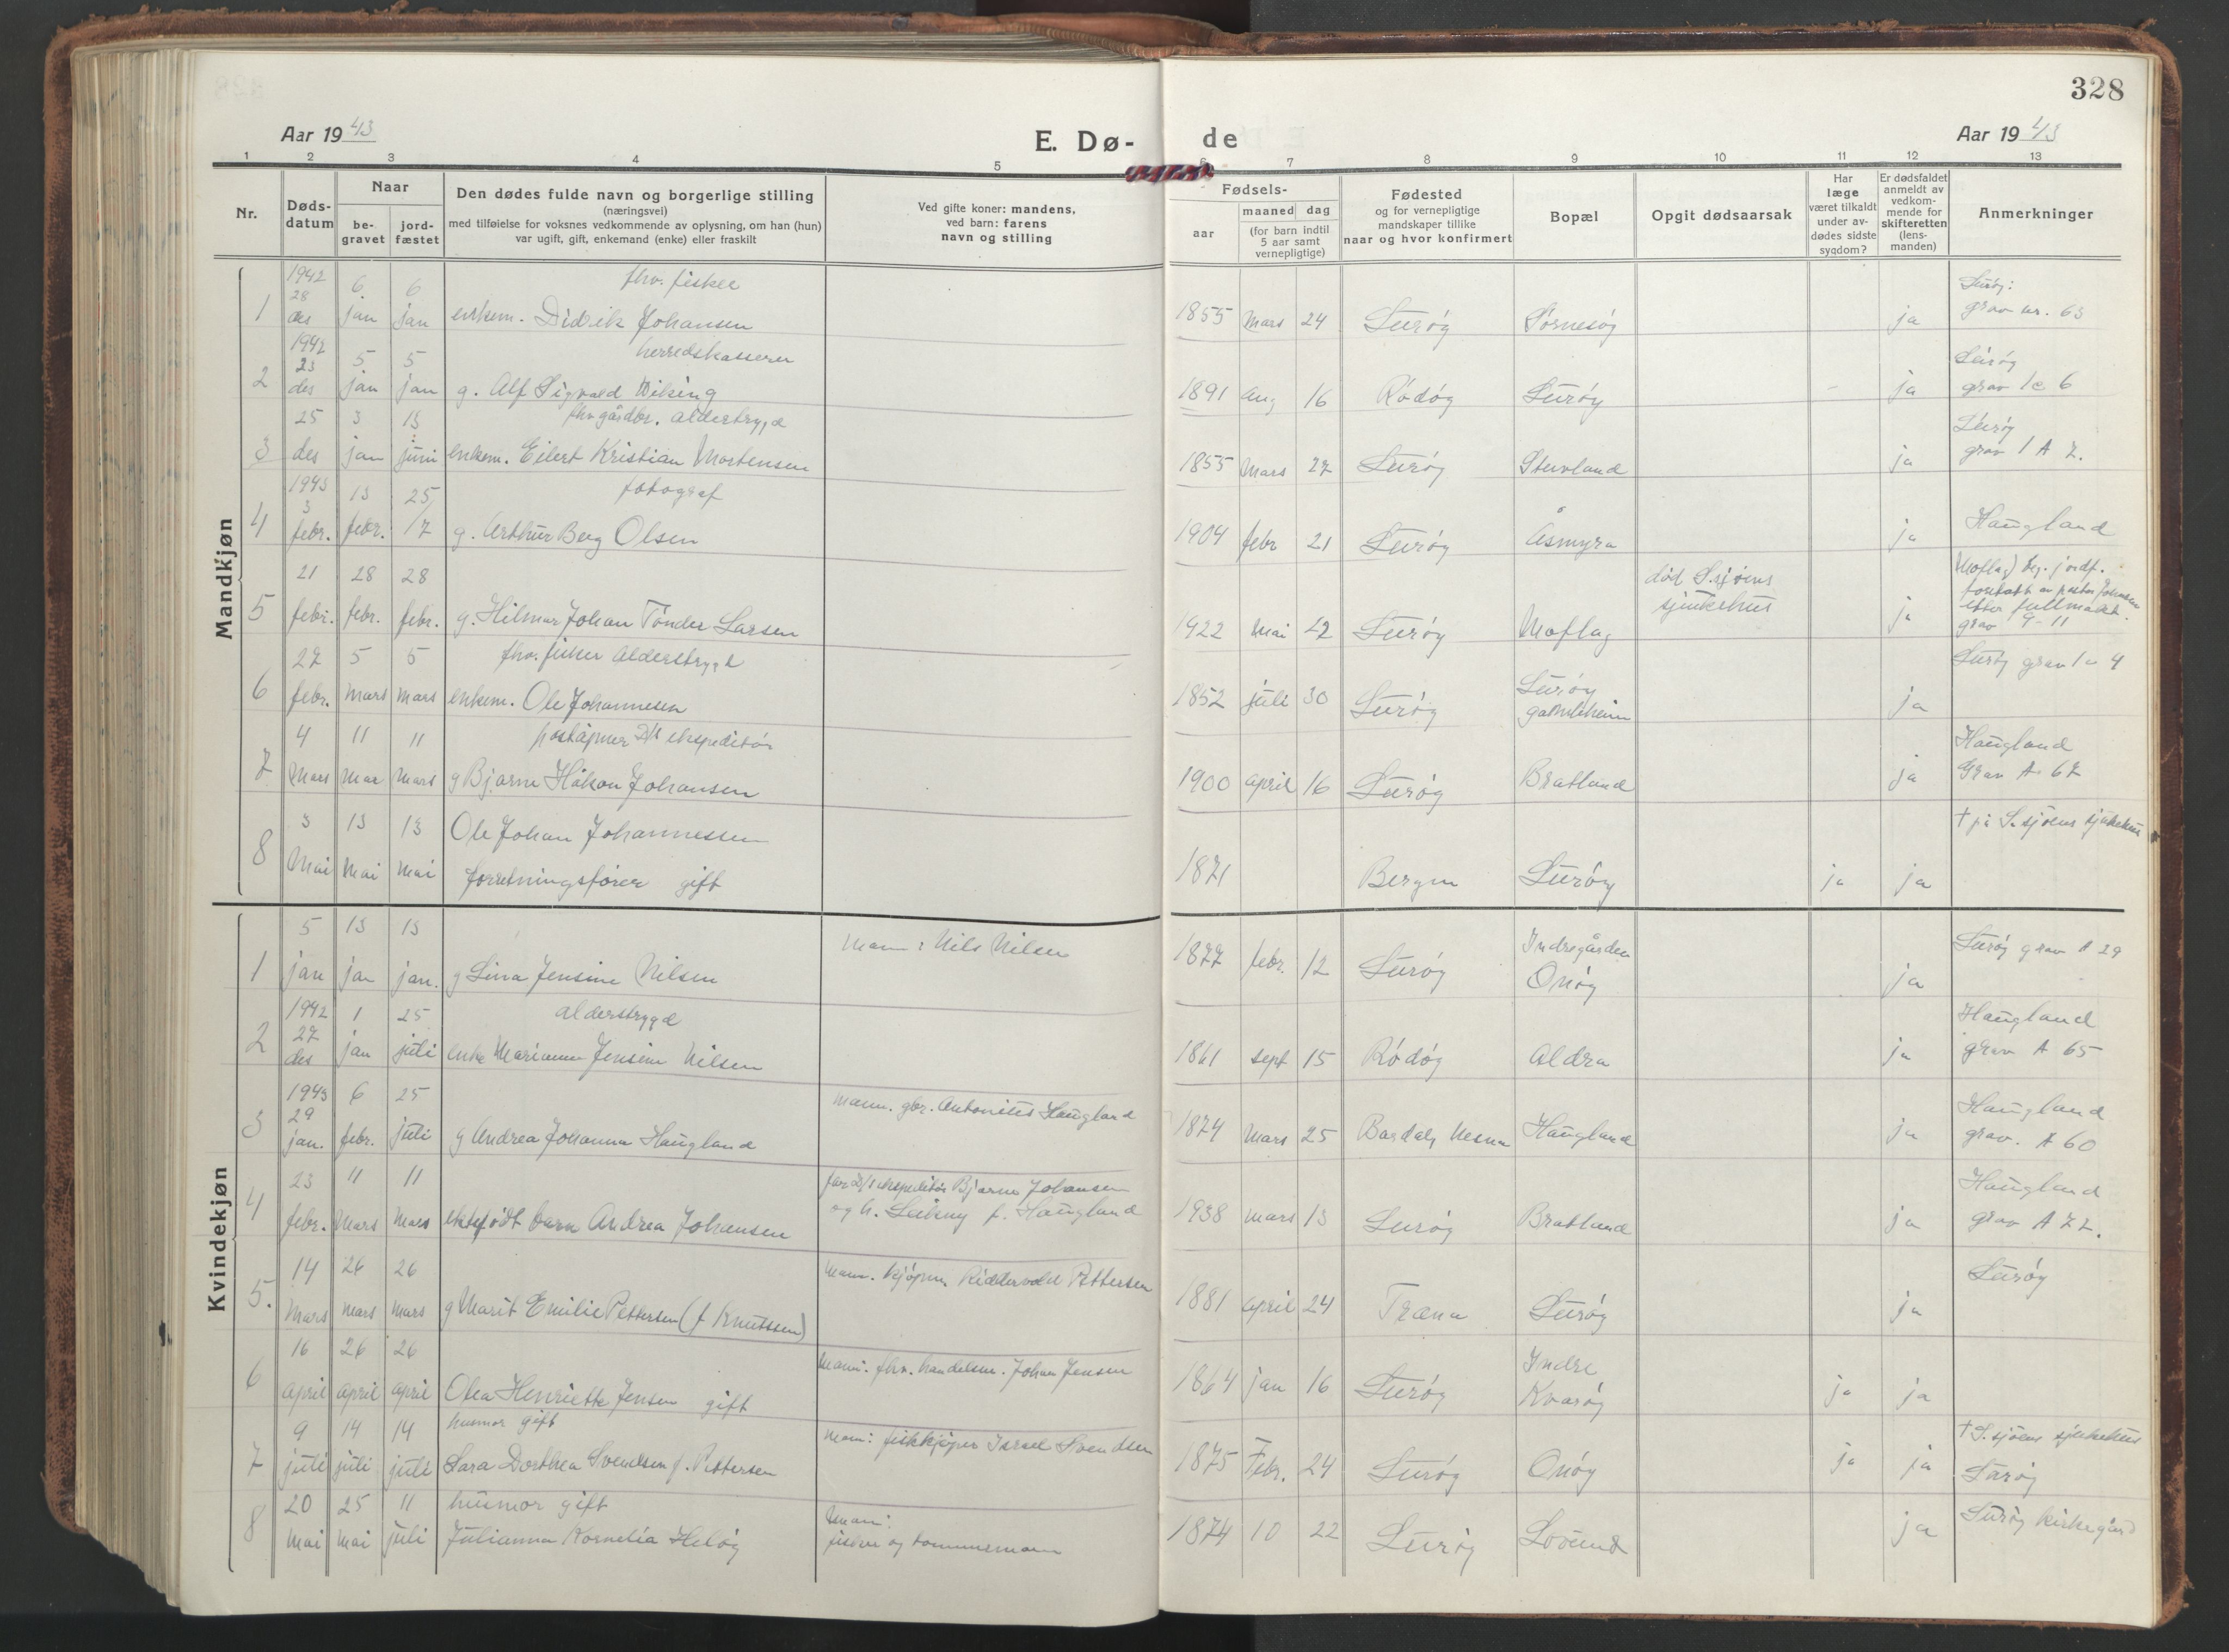 328
Aar 1943
E. Dø-
de
Aar 1943
1 2 3 4 5 6 7 8 9 10 11 12 13
Nr.
Døds-
datum
Naar
be-
gravet
jord-
fæstet
Den dødes fulde navn og borgerlige stilling
(næringsvei)
med tilføielse for voksnes vedkommende av oplysning, om han (hun)
var ugift, gift, enkemand (enke) eller fraskilt
Ved gifte koner: mandens,
ved barn: farens
navn og stilling
Fødsels-
aar
maaned dag
(for barn indtil
5 aar samt
vernepligtige)
Fødested
og for vernepligtige
mandskaper tillike
naar og hvor konfirmert
Bopæl
Opgit dødsaarsak
Har
læge
været tilkaldt
under av-
dødes sidste
sygdom?
Er dødsfaldet
anmeldt av
vedkom-
mende for
skifteretten
(lens-
manden)
Anmerkninger
Mandkjøn
1 1942 28 des 6 jan 6 jan fhv. fisker
enkem. Didrik Johansen 1855 Mars 24 Lurøy Sørnesøy ja Lurøy: grav nr. 63
2 1942 23 des 5 jan 5 jan herredskasserer
g. Alf Sigvald Wiking 1891 aug 16 Rødøy Lurøy - ja Lurøy grav 1c 6
3 25 des 3 jan 13 juni fhv. gårdbr. alderstrygd
enkem. Eilert Kristian Mortensen 1855 Mars 27 Lurøy Stuvland ja Lurøy grav 1 A 7.
4 1943 3 febr. 13 febr. 25/7 fotograf
g. Arthur Berg Olsen 1904 febr 21 Lurøy Åsmyra ja Haugland
5 21 febr. 28 febr. 28 febr.
g. Hilmar Johan Tønder Larsen 1922 Mai 27 Lurøy Moflag død S.sjøens sjukehus ja Moflag) beg. jordf.
foretatt av pastor Johansen
etter fullmakt.
grav 9-11
6 27 febr. 5 mars 5 mars fhv. fisker alderstrygd
enkem. Ole Johannesen 1852 juli 30 Lurøy Lurøy gamleheim ja Lurøy grav 1a 4
7 4 Mars 11 mar 11 mars poståpner D/S ekspeditør
g Bjarne Håkon Johansen 1900 april 16 Lurøy Bratland ja Haugland Grav A 67
8 3 Mai 13 Mai 13 Mai Ole Johan Johannessen
forretningsfører gift 1871 Bergen Lurøy ja ja † på S.sjøens sjukehus
Kvindekjøn
1 5 jan 13 jan 13 jan. g Lina Jensine Nilsen Mann: Nils Nilsen 1877 febr. 12 Lurøy Indregården Onøy ja Lurøy grav A 29
2 1942 27 des 1 jan 25 juli alderstrygd
enke Marianna Jensine Nilsen 1861 sept 15 Rødøy Aldra ja Haugland grav A 65
3 1943 29 jan. 6 febr. 25 juli g Andrea Johanna Haugland mann. gbr. Antonius Haugland 1874 Mars 25 Bardal, Nesna Haugland ja Haugland grav. A 60
4 23 febr. 11 Mars 11 Mars ektefødt barn Andrea Johansen far D/S ekspeditør Bjarne Johansen
og h. f. Haugland 1938 mars 13 Lurøy Bratland ja Haugland grav A 77.
5. 14 Mars 26 mars 26 mars g Marit Emilie Pettersen (f Knutssen) Mann. kjøpm. Riddervold Pettersen 1881 april 24 Træna Lurøy ja Lurøy
6 16 april 26 april 26 april Olea Henriette Jensen gift Mann: fhv. handelsm. Johan Jensen 1864 jan 16 Lurøy Indre Kvarøy ja ja
7 9 juli 14 juli 14 juli husmor gift
Sara Dorthea Svendsen f. Pettersen Mann: fiskkjøper Israel Svendsen 1875 Febr. 24 Lurøy Onøy ja ja † S.sjøens sjukehus
Lurøy
8 20 mai 25 mai 11 juli husmor gift
Julianna Kornelia Heløy Mann:
fisker og tømmermann 1874 10 22 Lurøy Lovund ja Lurøy kirkegård